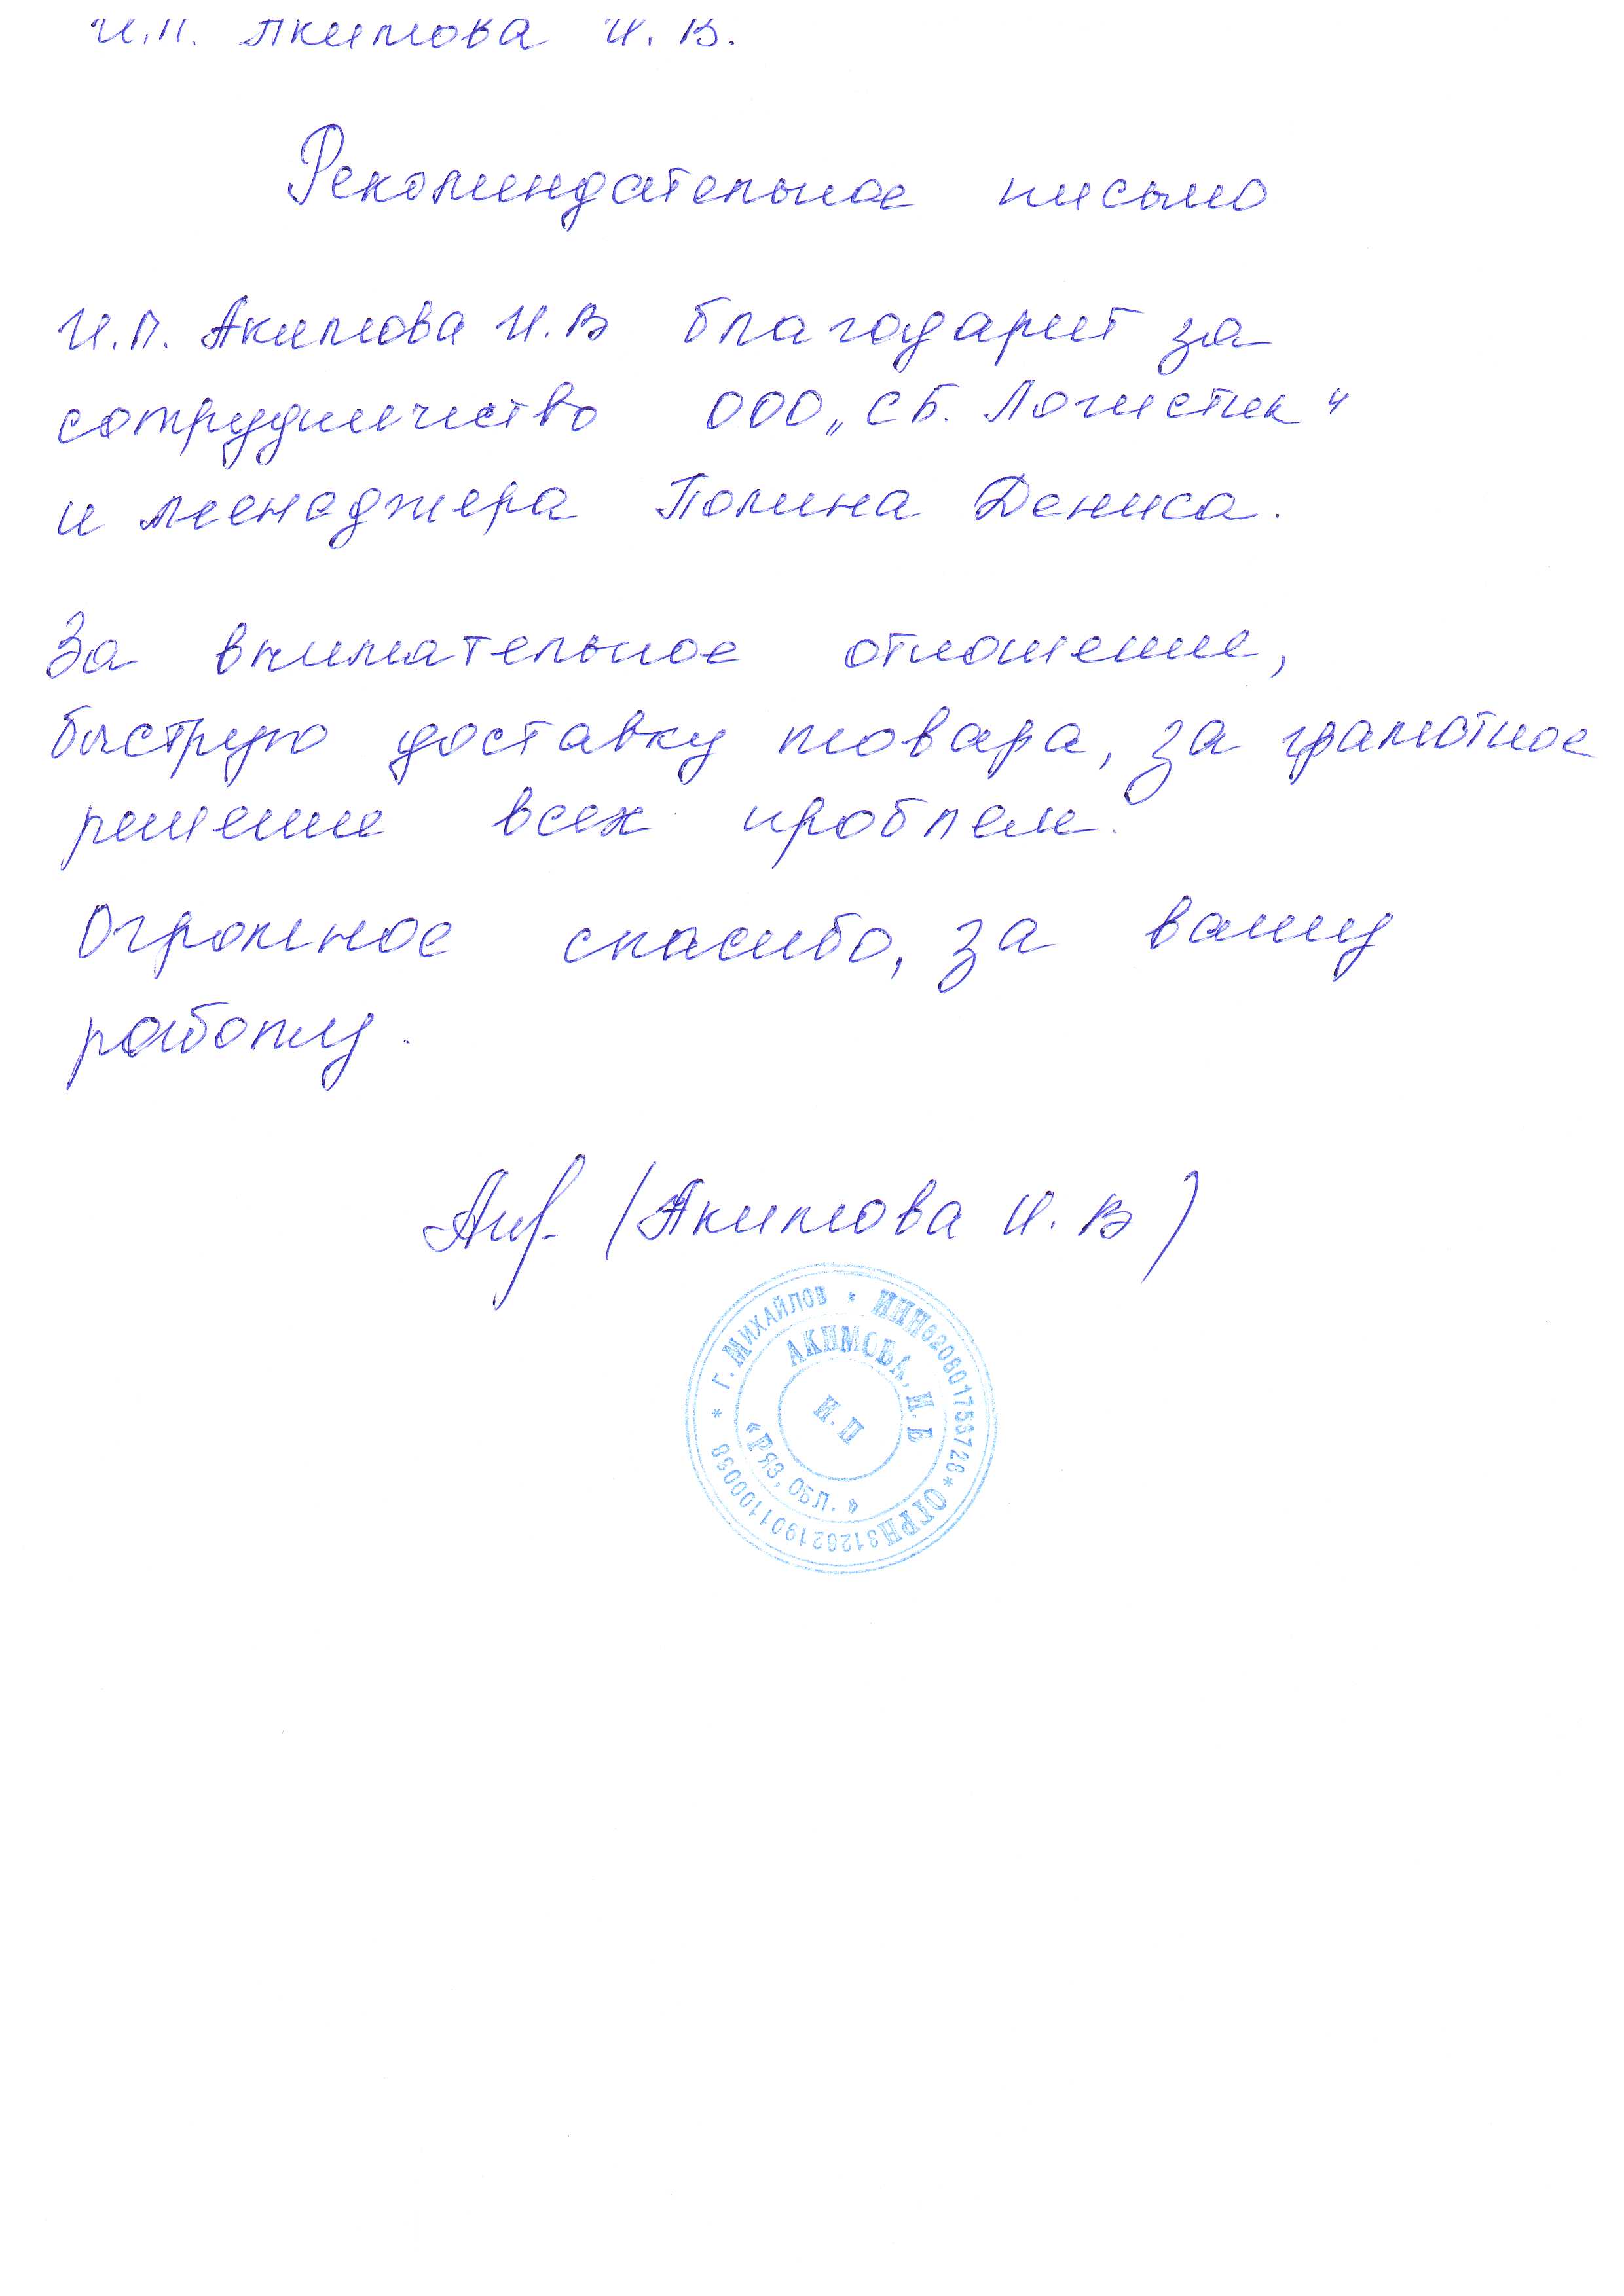 И.П. Акимова И. В.
Рекоминдательное письмо
И.П. Акимова И.В благодарит за
сотрудничество ООО „СБ. Логистик"
и менеджера Полина Дениса.
За внимательное отношение,
быструю доставку товара, за грамотное
решение всех проблем.
Огромное спасибо, за вашу
работу.
(Акимова И. В)
* г. Михайлов * ИНН620801756728 * ОГРН312621901100098
АКИМОВА, И. В
«Ряз, обл.»
И. П